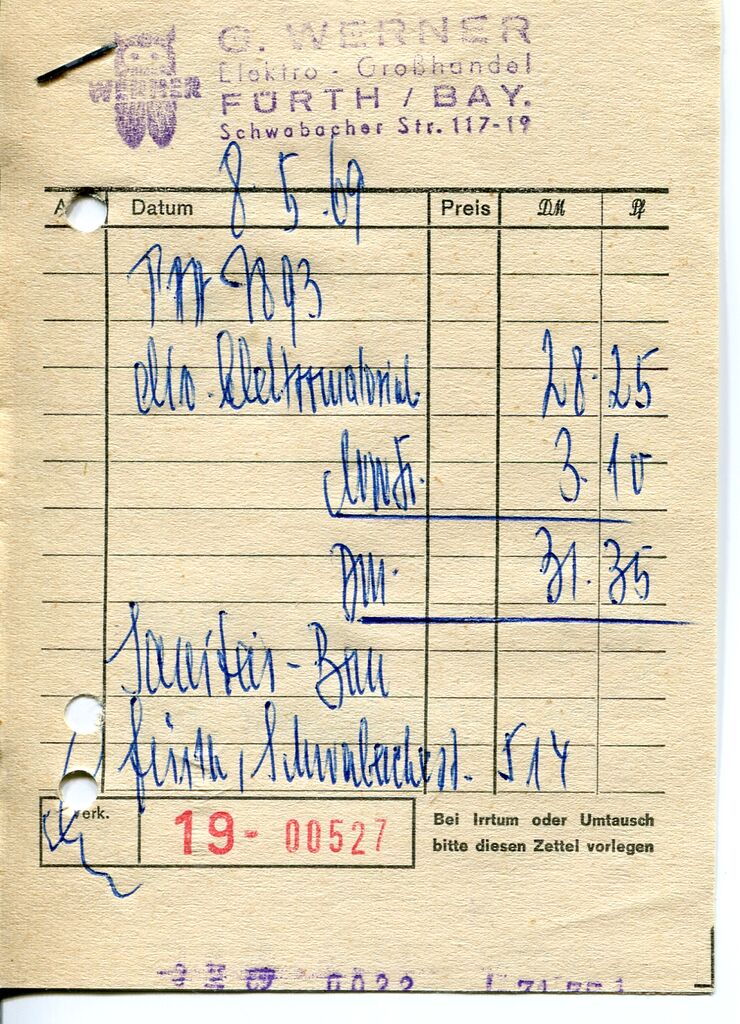 G. WERNER
Elektro - Großhandel
WERNER
FÜRTH / BAY.
Schwabacher Str. 117-19
Datum 8.5.69 Preis DM Pf
7893
div. Elektromaterial 28.25
Mwst. 3.10
DM. 31.35
Sanitär-Bau
Fürth, Schwabacherst. 514
Verk.
19- 00527
Bei Irrtum oder Umtausch
bitte diesen Zettel vorlegen
0022